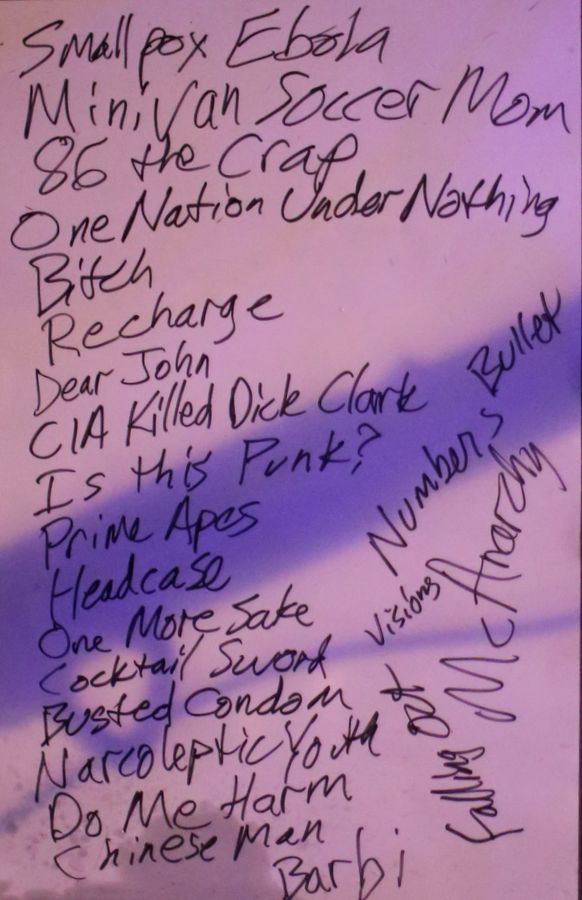 Smallpox Ebola
Minivan Soccer Mom
86 the Crap
One Nation Under Nothing
Bitch
Recharge
Dear John
CIA Killed Dick Clark
Is this Punk?
Prime Apes
Headcase
One More Sake
Cocktail Sword
Busted Condom
Narcoleptic Youth
Do Me Harm
Chinese Man
Barbi
Bullet
Numbers
McAnarchy
Visions
Falling Out